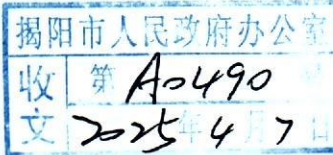 揭阳市人民政府办公室
收文 第 A0490 号
2025年4月7日